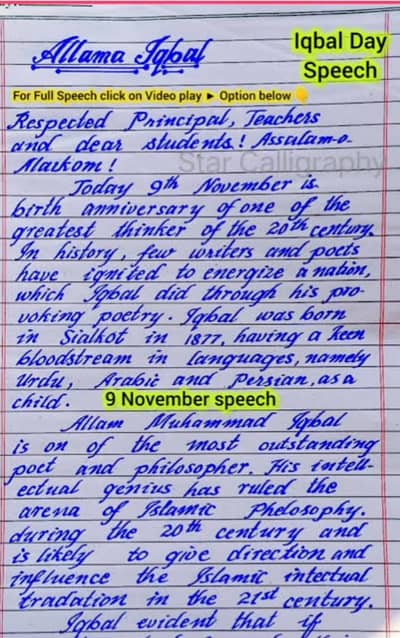 Allama Iqbal
Iqbal Day
Speech
For Full Speech click on Video play ► Option below 👇
Respected Principal, Teachers
and dear students! Assalam-o-
Alaikom!
Star Calligraphy
Today 9th November is
birth anniversary of one of the
greatest thinker of the 20th century.
In history, few writers and poets
have ignited to energize a nation,
which Iqbal did through his pro-
voking poetry. Iqbal was born
in Sialkot in 1877, having a keen
bloodstream in languages, namely
Urdu, Arabic and Persian, as a
child.
9 November speech
Allam Muhammad Iqbal
is on of the most outstanding
poet and philosopher. His intell-
ectual genius has ruled the
arena of Islamic Phelosophy.
during the 20th century and
is likely to give direction and
influence the Islamic intectual
tradation in the 21st century.
Iqbal evident that if